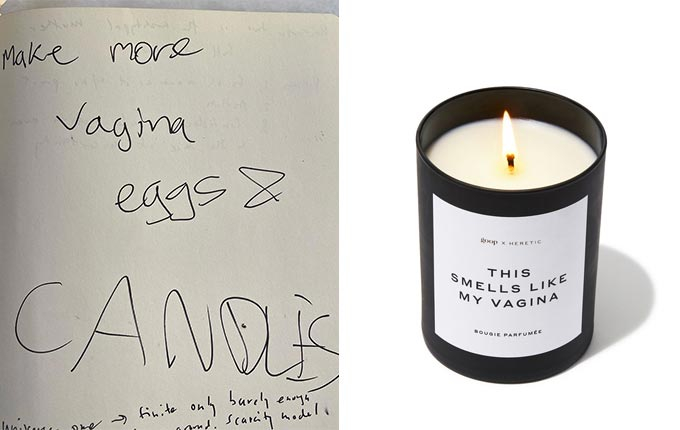 Make more
Vagina
eggs &
CANDLES
→ finite only barely enough
scarcity model.
goop X HERETIC
THIS
SMELLS LIKE
MY VAGINA
BOUGIE PARFUMÉE